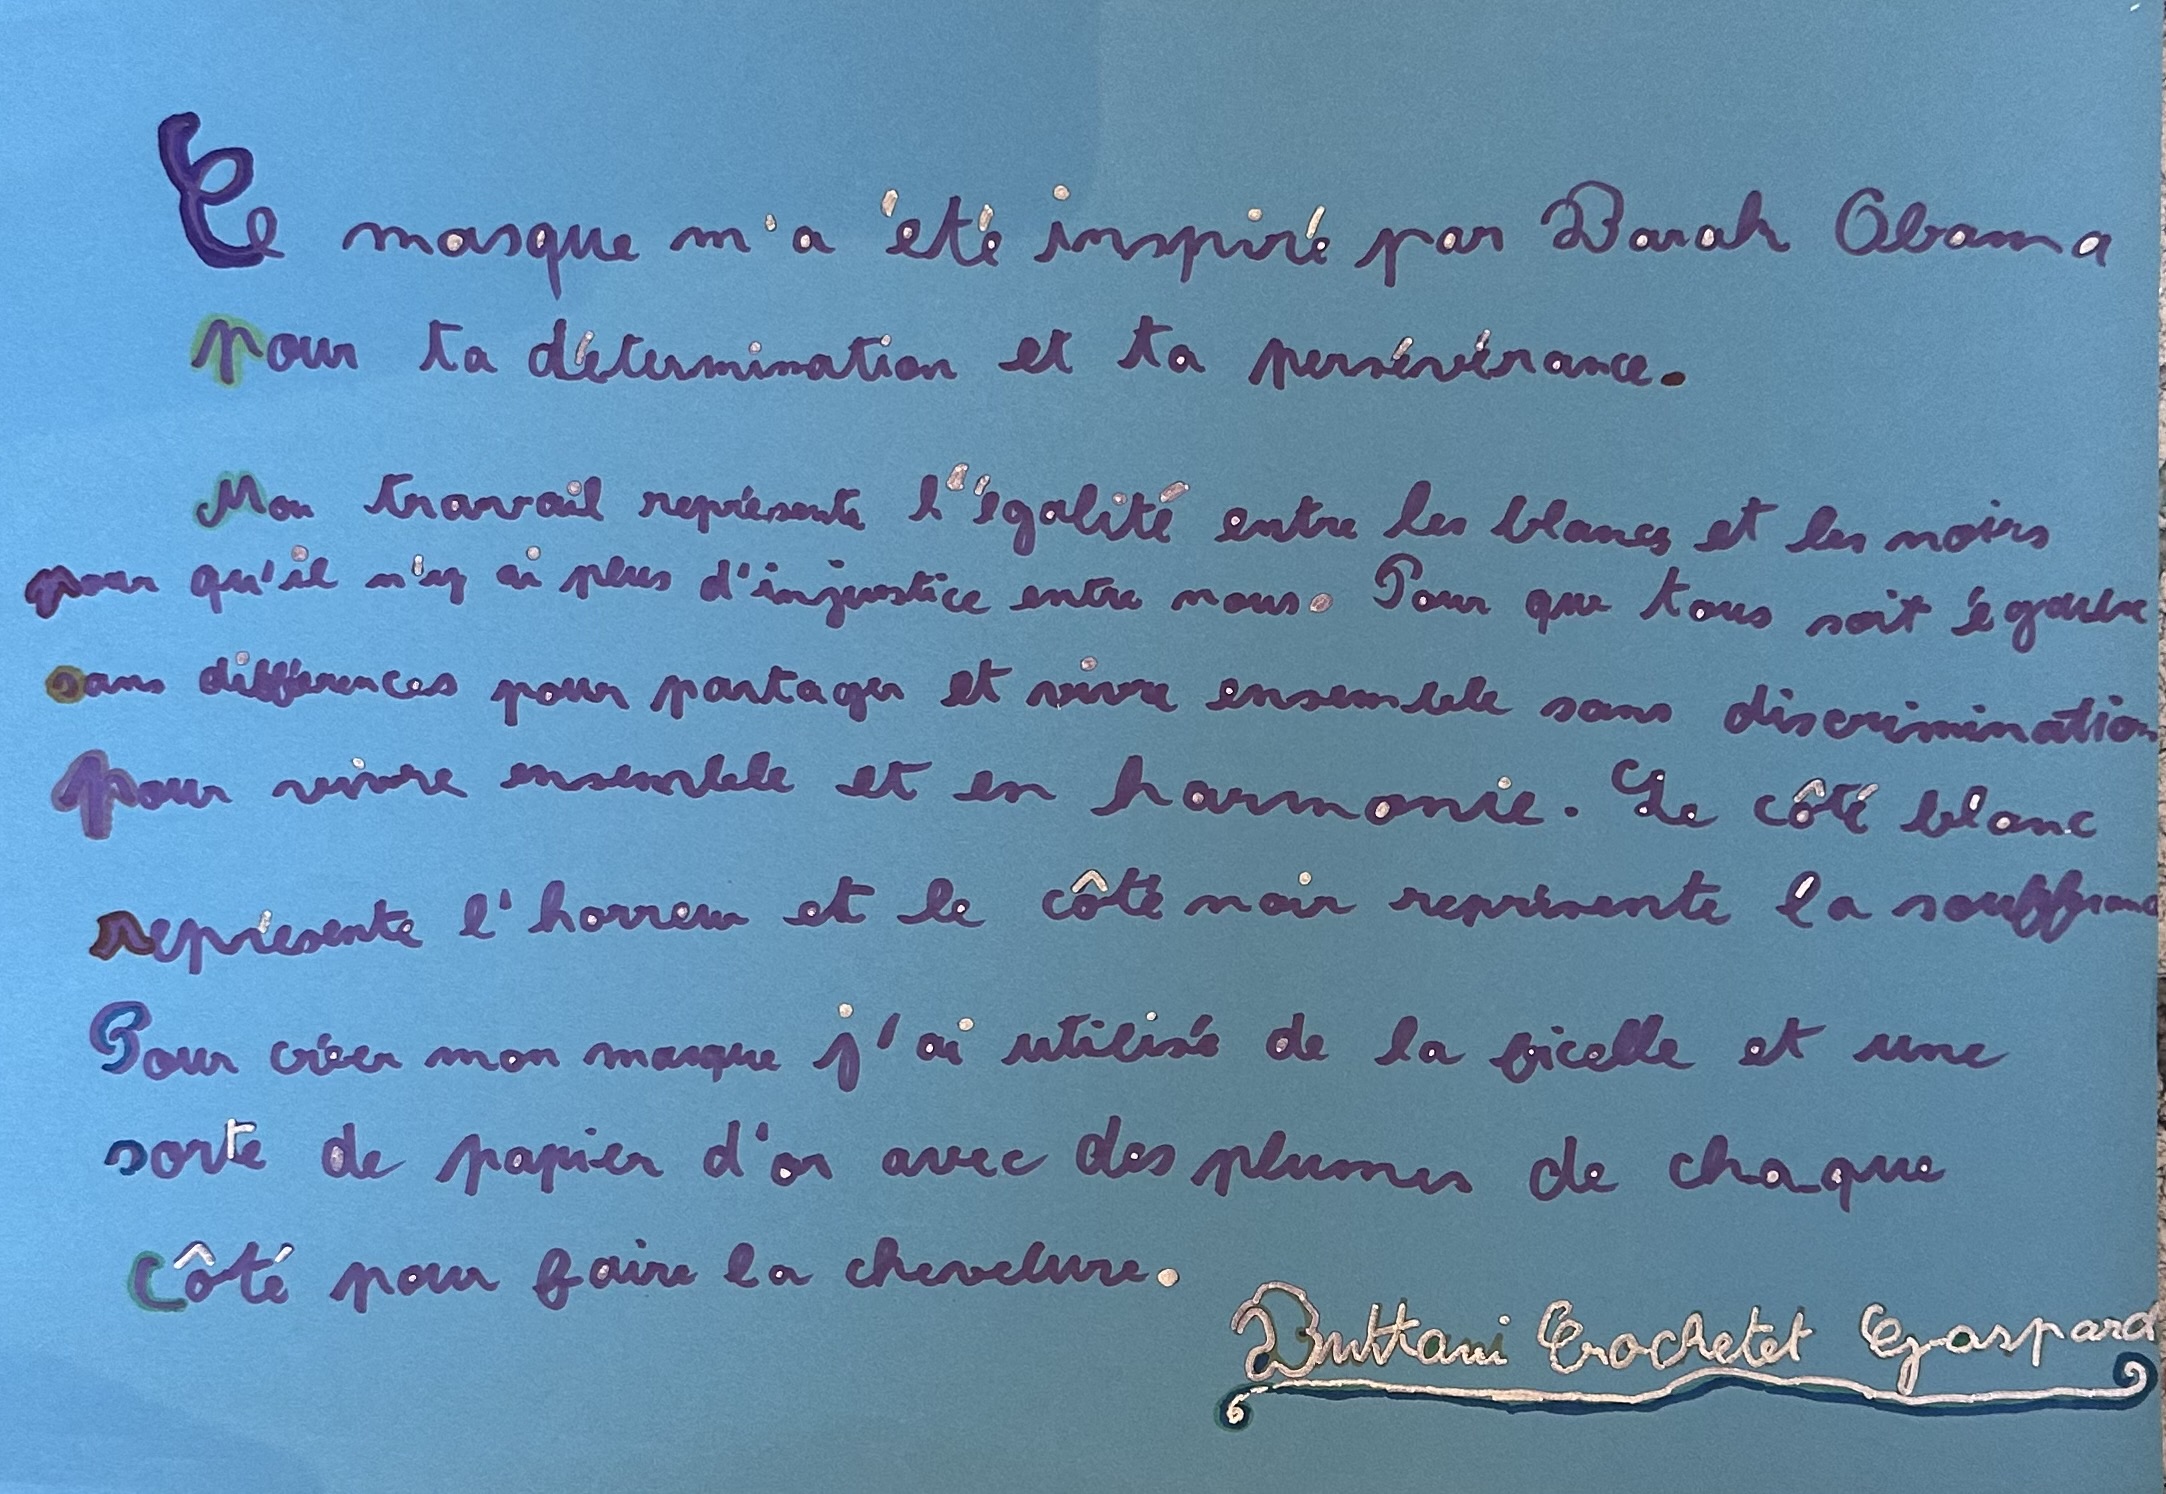 Ce masque m'a été inspiré par Barak Obama
pour ta détermination et ta persévérance.
Mon travail représente l'égalité entre les blancs et les noirs
pour qu'il n'y ai plus d'injustice entre nous. Pour que tous soit
sans différences pour partager et vivre ensemble sans discrimination
pour vivre ensemble et en harmonie. Le côté blanc
représente l'horreur et le côté noir représente la
Pour créer mon masque j'ai utilisé de la ficelle et une
sorte de papier d'or avec des plumes de chaque
côté pour faire la chevelure.
Buttani Crochetet Gaspard